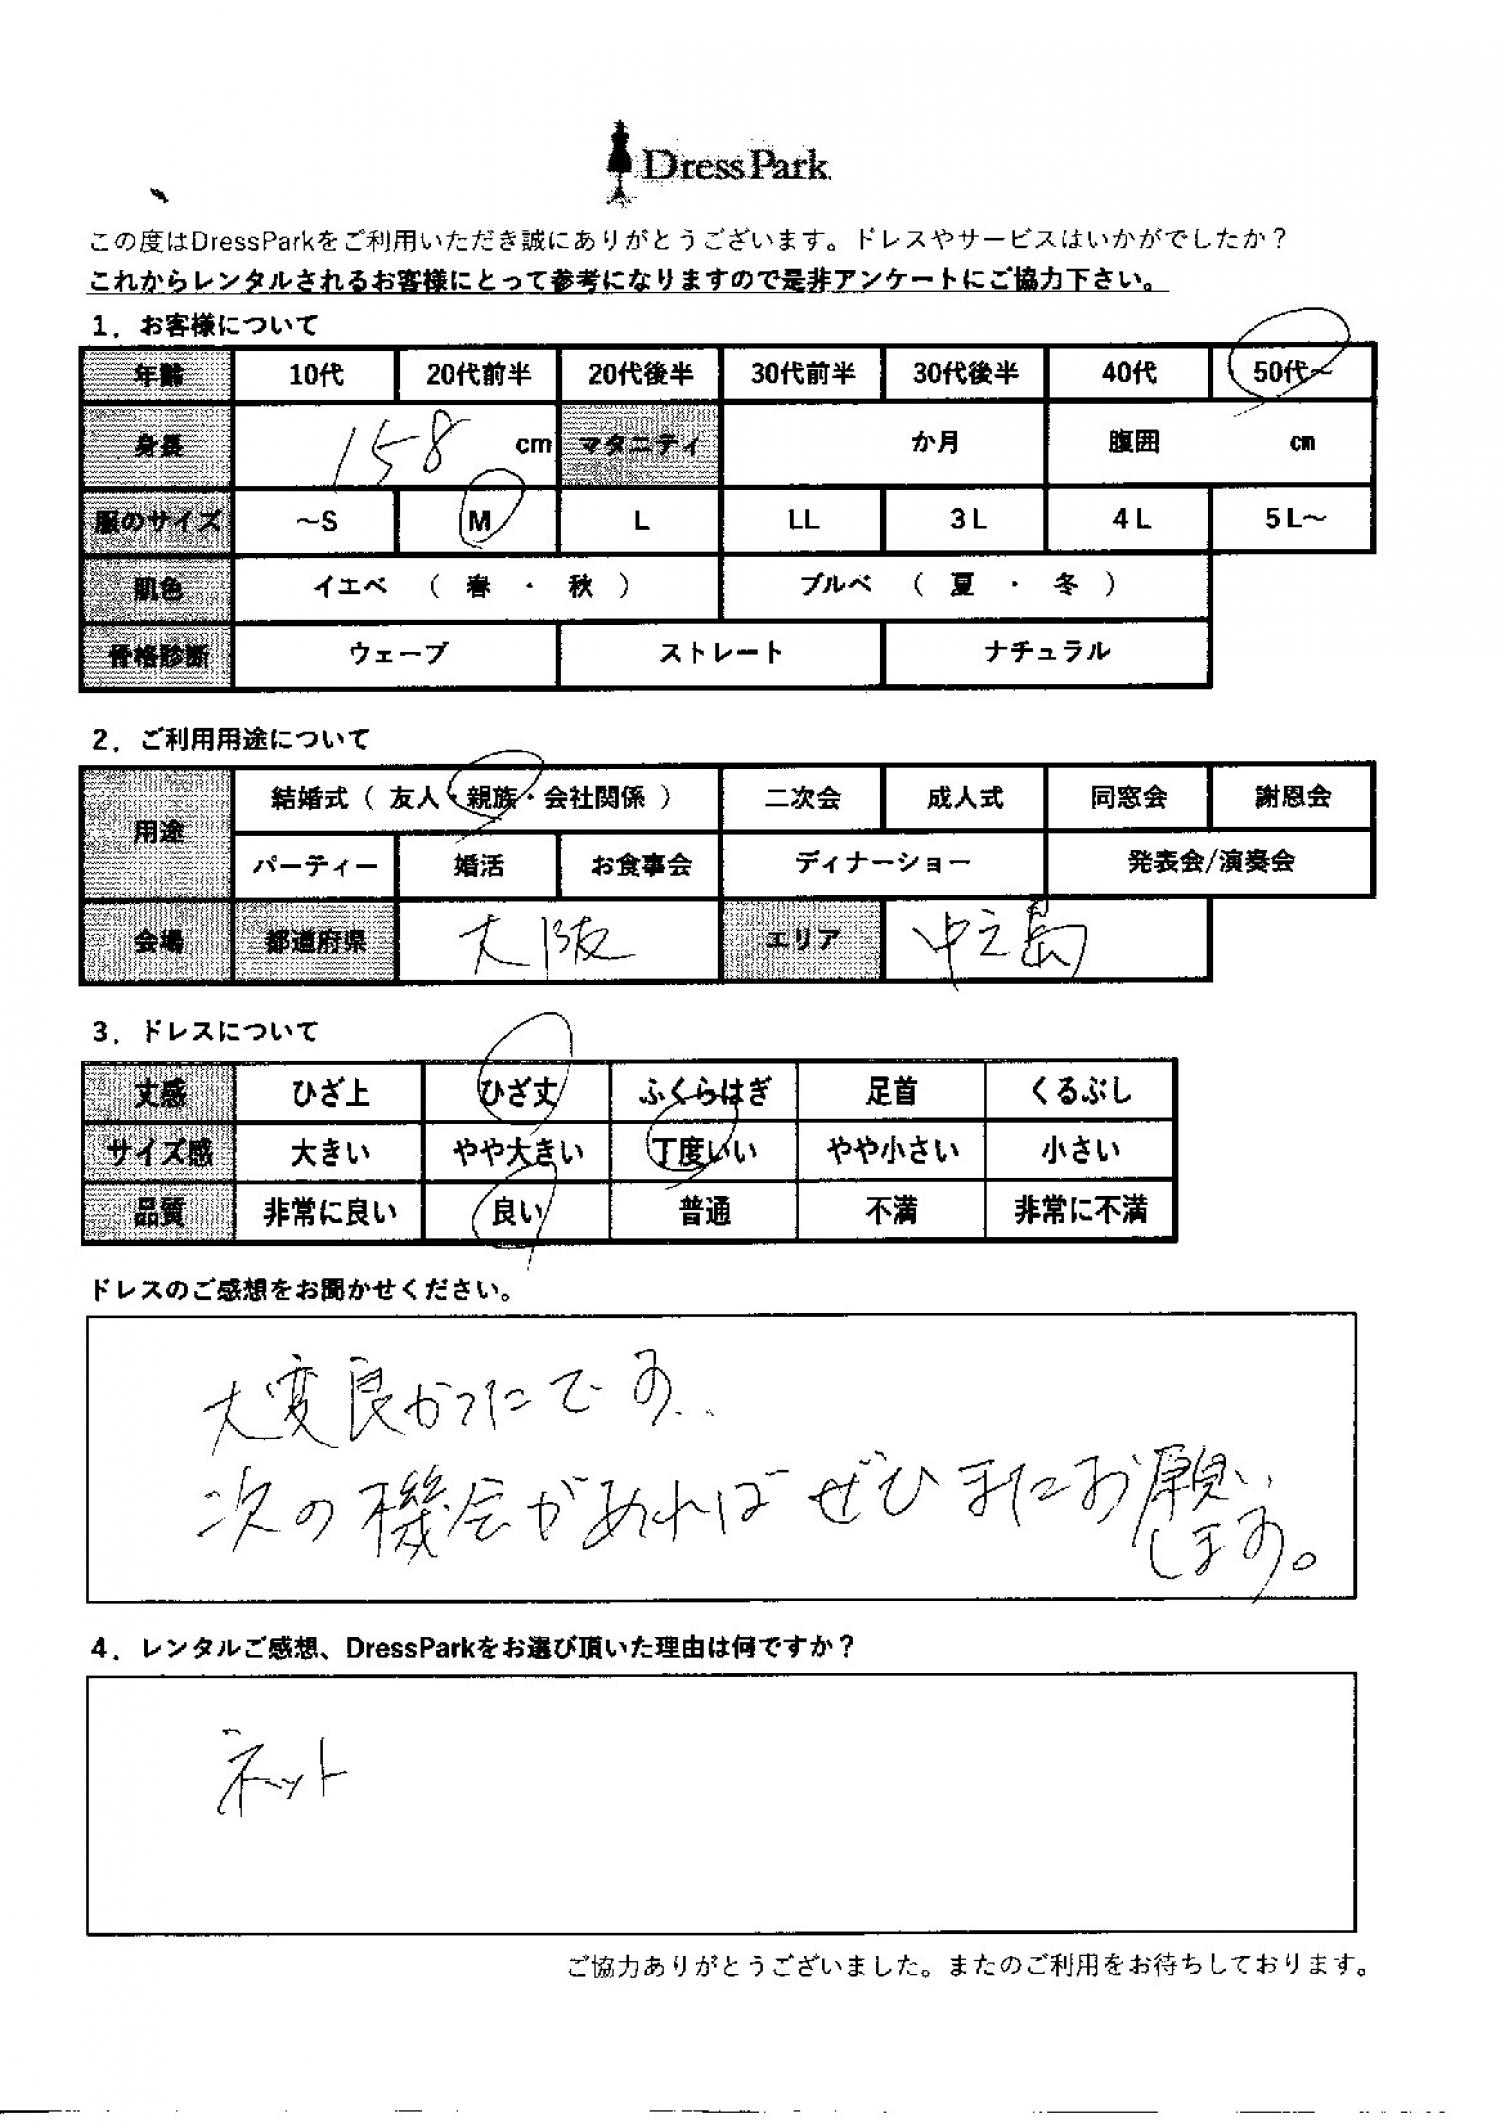 DressPark
この度はDressParkをご利用いただき誠にありがとうございます。ドレスやサービスはいかがでしたか？
これからレンタルされるお客様にとって参考になりますので是非アンケートにご協力下さい。
1．お客様について
年齢 10代 20代前半 20代後半 30代前半 30代後半 40代 50代～
身長 158 cm マタニティ か月 腹囲 cm
服のサイズ ～S M L LL 3L 4L 5L～
肌色 イエベ （ 春 ・ 秋 ） ブルベ （ 夏 ・ 冬 ）
骨格診断 ウェーブ ストレート ナチュラル
2．ご利用用途について
用途 結婚式（ 友人・親族・会社関係 ） 二次会 成人式 同窓会 謝恩会
パーティー 婚活 お食事会 ディナーショー 発表会/演奏会
会場 都道府県 大阪 エリア 中之島
3．ドレスについて
丈感 ひざ上 ひざ丈 ふくらはぎ 足首 くるぶし
サイズ感 大きい やや大きい 丁度いい やや小さい 小さい
品質 非常に良い 良い 普通 不満 非常に不満
ドレスのご感想をお聞かせください。
大変良かったです。
次の機会があればぜひまたお願い
します。
4．レンタルご感想、DressParkをお選び頂いた理由は何ですか？
ネット
ご協力ありがとうございました。またのご利用をお待ちしております。